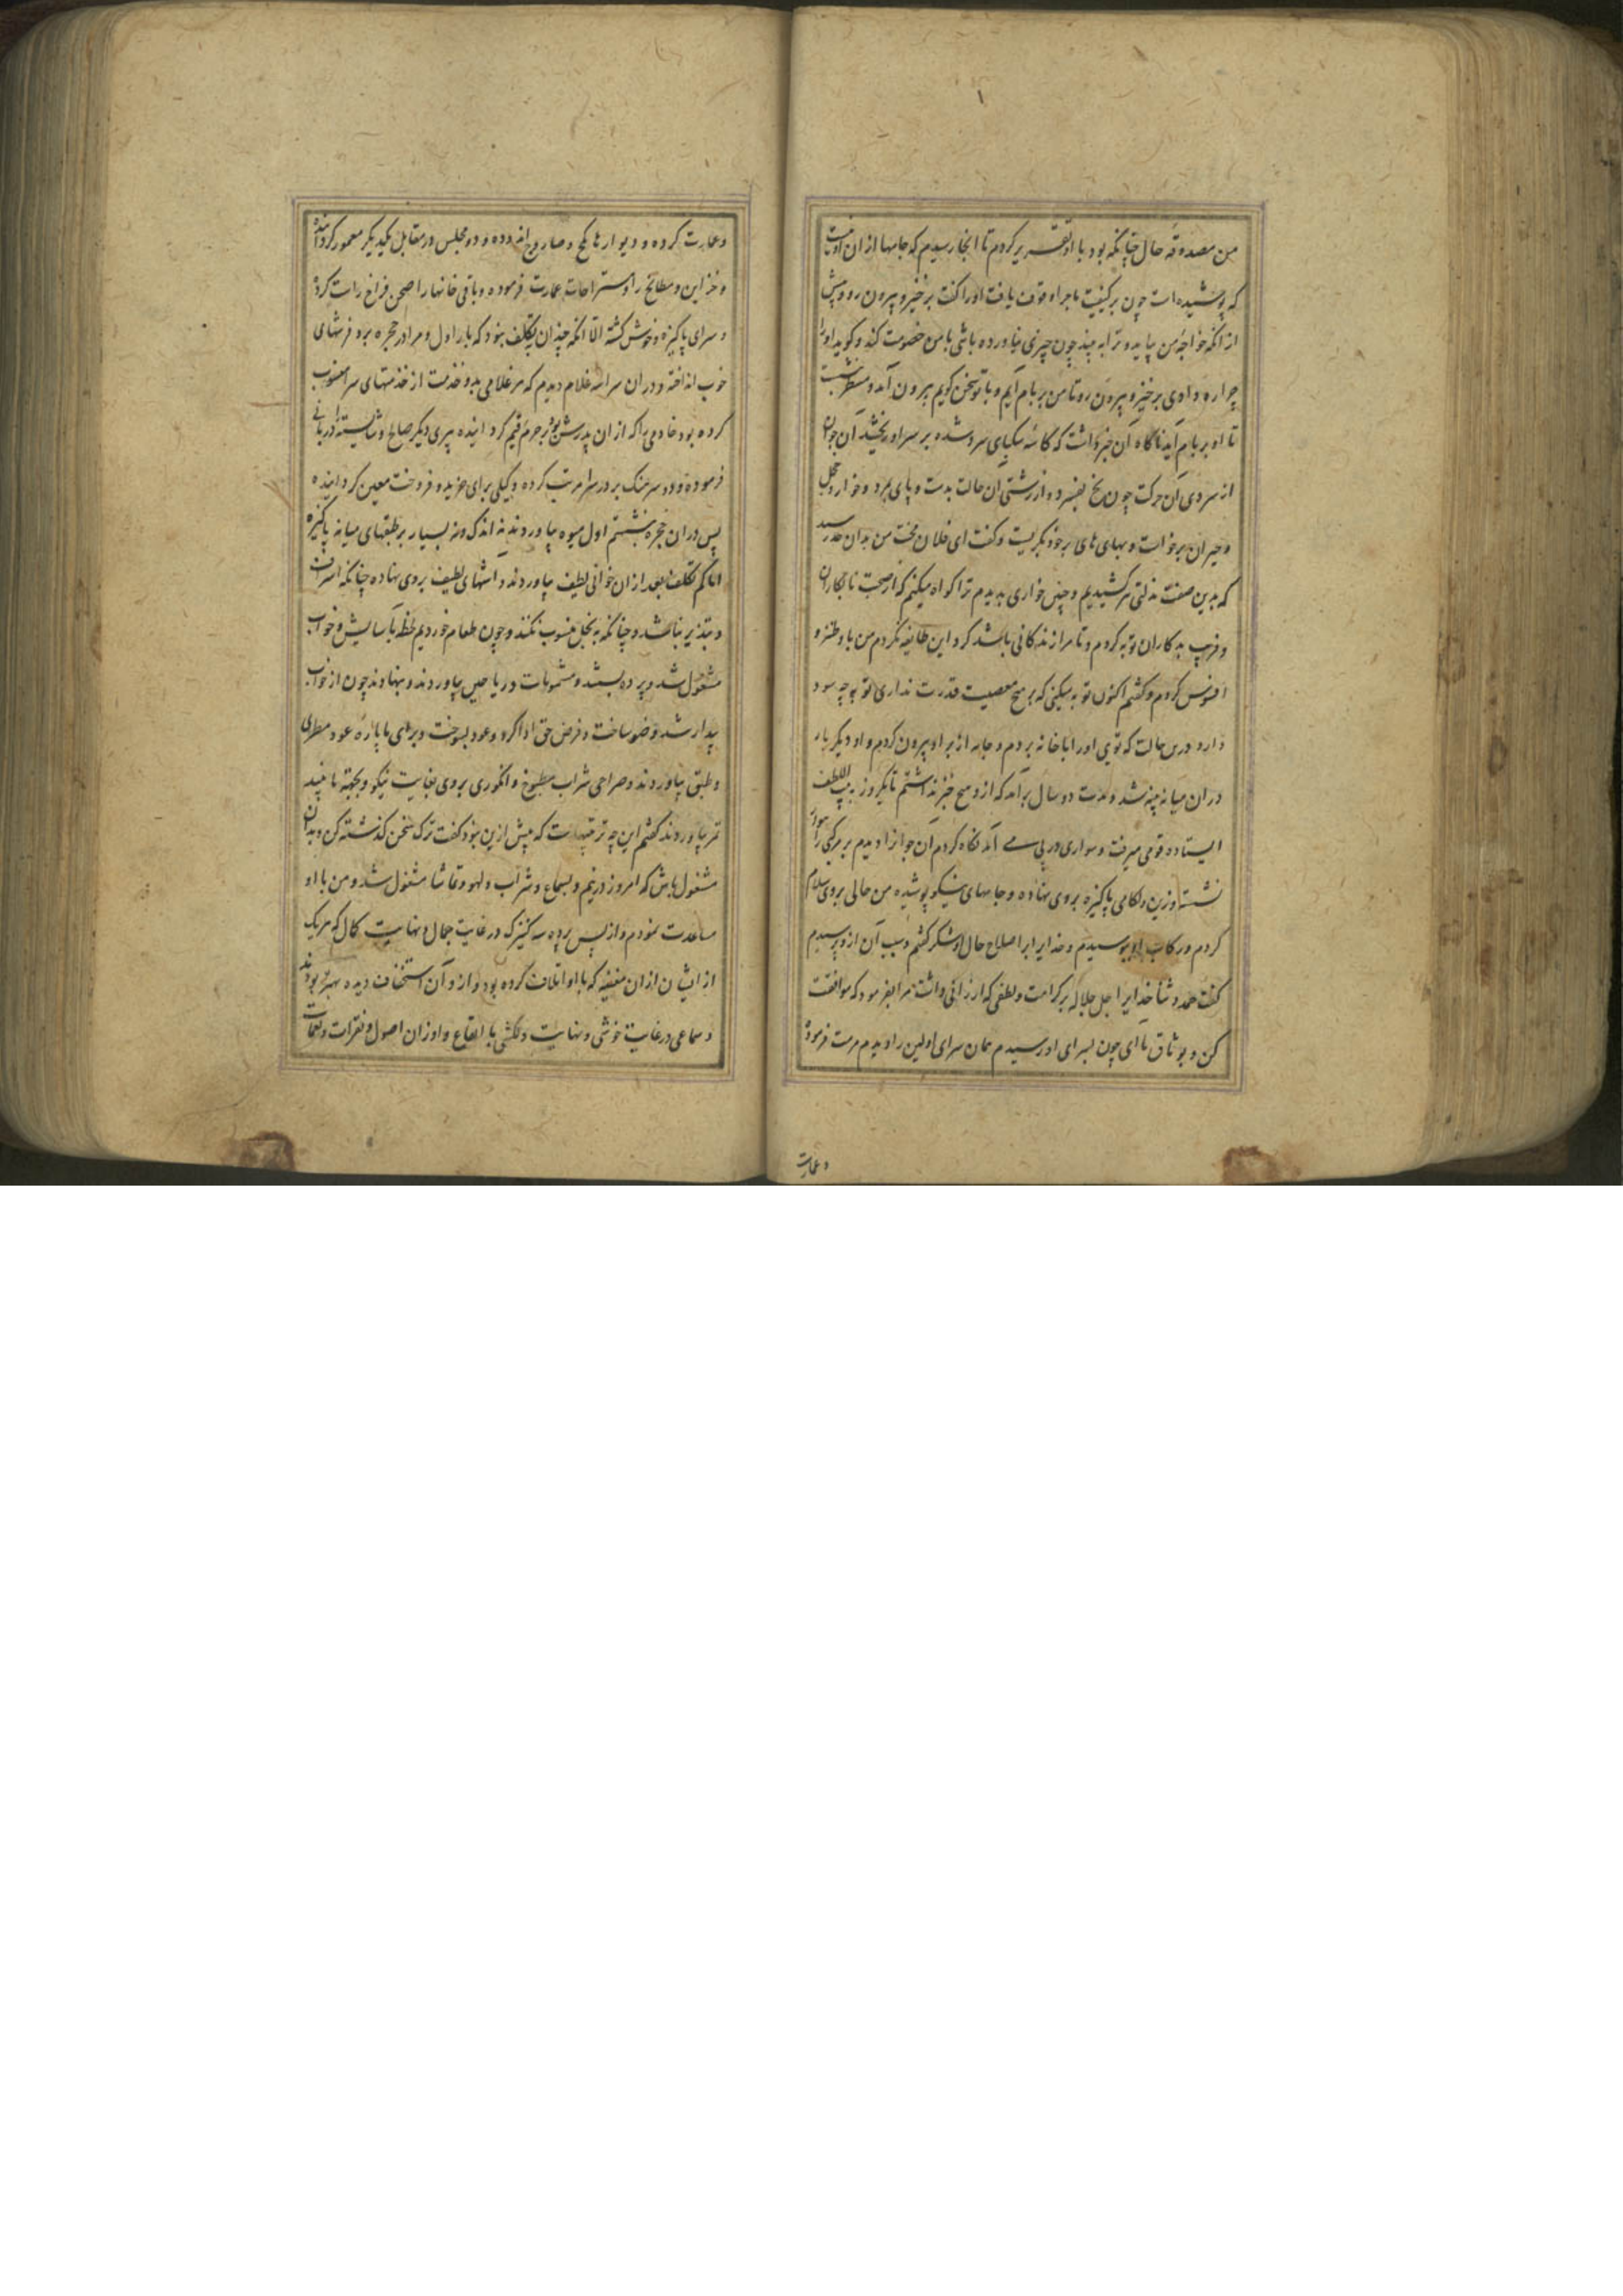 من مصدوقه حال چنانکه بود با او تقریر کردم تا انجا رسیدم که جامها از ان اوست
که پوشیده است چون بر کیفیت ماجرا وقوف یافت اورا کفت برخیز و بیرون رو و پیش
از انکه خواجهٔ من بیاید و ترا به بیند چون چیزی نیاورده باشی با من خصومت کند و کوید اورا
چرا ره دادی برخیز و بیرون رو تا من بر بام آیم و با تو سخن کویم بیرون آمد و منتظر بنشست
تا او بر بام آید ناکاه آن خبر داشت که کاسه سکبای سرد شده بر سر او ریختند آن جوان
از سردی آن حرکت چون یخ بفسرد و از زشتی آن حالت بدست و پای بمرد و خوار و خجل
و حیران برخواست و بهای های بر خود بگریست و کفت ای فلان محنت من بدان حد رسید
که بدین صفت مذلتی بر کشیدیم و چنین خواری بدیدم ترا کواه میکنم که از صحبت نابکاران
و فریب بدکاران توبه کردم و تا مرا زندکانی باشد کرد این طایفه نکردم من با و طنز و
افسوس کردم و کفتم اکنون توبه میکنی که بر هیچ معصیت قدرت نداری توبه چه سود
دارد درین حالت که توی اورا با خانه بردم و جامه از بر او بیرون کردم و او دیکر بار
دران میانه پنبه شد و مدت دو سال برآمد که ازو هیچ خبر نداشتم تا یکروز بباب الطف
ایستاده قومی میرفت و سواری در پی می آمد نکاه کردم آن جوانرا دیدم بر مرکبی سوار
نشسته و زین و لکامی پاکیزه بروی نهاده و جامهای نیکو پوشیده من حالی بروی سلام
کردم و رکاب او ببوسیدم و خدایرا بر اصلاح حال او شکر کفتم و سبب آن ازو پرسیدم
کفت حمد و ثنا خدایرا جل جلاله بر کرامت و لطفی که ارزانی داشت مرا بفرمود که موافقت
کن و بوثاق ما ای چون بسرای او رسیدم همان سرای اولین را دیدم مرمت فرموده
و عمارت
و عمارت کرده و دیوارها بکچ و صاروج اندوده و دو مجلس در مقابل یکدیکر معمور کردانیده
و خزاین و مطابخ را و مستراحات عمارت فرموده و باقی خانها را صحن فراخ راست کرده
و سرای پاکیزه و خوش کشته الا انکه چندان تکلف نبود که بار اول و مرا در حجره برد فرشهای
خوب انداخته و دران سرا سه غلام دیدم که هر غلامی بدو خدمت از خدمتهای سرا منسوب
کرده بود خادمی را که از ان پدرش بود بر حرم قیم کردانیده پیری دیکر صالح و شایسته را دربانی
فرموده و دو سرهنک بر در سرا مرتب کرده و کیلی برای خرید و فروخت معین کردانیده
پس دران حجره بنشستم اول میوه بیاوردند نه اندک و نه بسیار بر طبقهای میانه پاکیزه
اما کم تکلف بعد از ان خوانی لطیف بیاوردند و آشهای لطیف بروی نهاده چنانکه اسراف
و تبذیر نباشد و چنانکه به بخل منسوب نکنند و چون طعام خوردیم لحظه بآسایش و خواب
مشغول شد و پرده ببستند و مشمومات و ریاحین بیاوردند و بنهادند چون از خواب
بیدار شد وضو ساخت و فرض حق ادا کرد و عود بسوخت و برای ما پاره عود مطری
و طبق بیاوردند و صراحی شراب مطبوخ و انکوری بروی بغایت نیکو و بجهة ما نبیذ
تمر بیاوردند کفتم این چه ترتیبست که پیش ازین نبود کفت ترک سخن کذشته کن و بدان
مشغول باش که امروز دریم و بسماع و شراب و لهو و تماشا مشغول شد و من با او
مساعدت نمودم و از پس پرده سه کنیزک در غایت جمال و نهایت کمال که هر یک
از ایشان ازان مغنیه که با او اتلاف کرده بود و ازو آن استخفاف دیده بهتر بودند
و سماعی در غایت خوشی و نهایت دلکشی با ایقاع و اوزان اصول و نقرات و نغمات